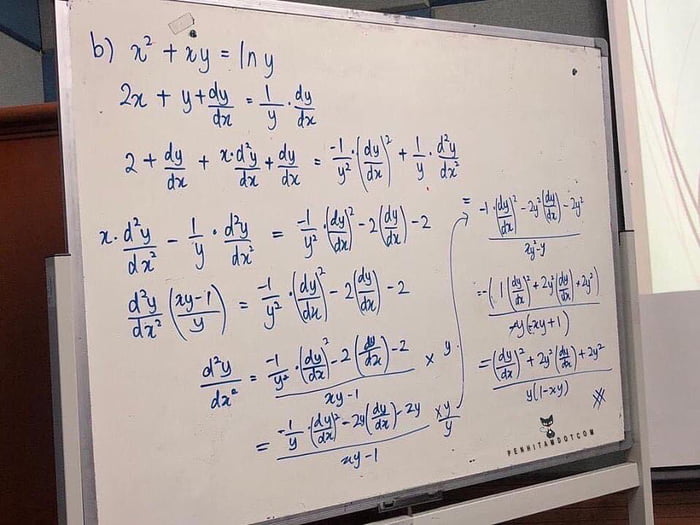 b) x² + xy = ln y
2x + y + dy/dx = 1/y · dy/dx
2 + dy/dx + x · d²y/dx² + dy/dx = -1/y² · (dy/dx)² + 1/y · d²y/dx²
x · d²y/dx² - 1/y · d²y/dx² = -1/y² · (dy/dx)² - 2(dy/dx) - 2
d²y/dx² (xy-1/y) = -1/y² · (dy/dx)² - 2(dy/dx) - 2
d²y/dx² = -1/y² · (dy/dx)² - 2(dy/dx) - 2 / xy-1 × y
= -1/y · (dy/dx)² - 2y(dy/dx) - 2y / xy-1 × y/y
= -1 · (dy/dx)² - 2y²(dy/dx) - 2y² / xy²-y
= -(1(dy/dx)² + 2y²(dy/dx) + 2y²) / -y(-xy+1)
= (dy/dx)² + 2y²(dy/dx) + 2y² / y(1-xy)
PENHITAMDOTCOM